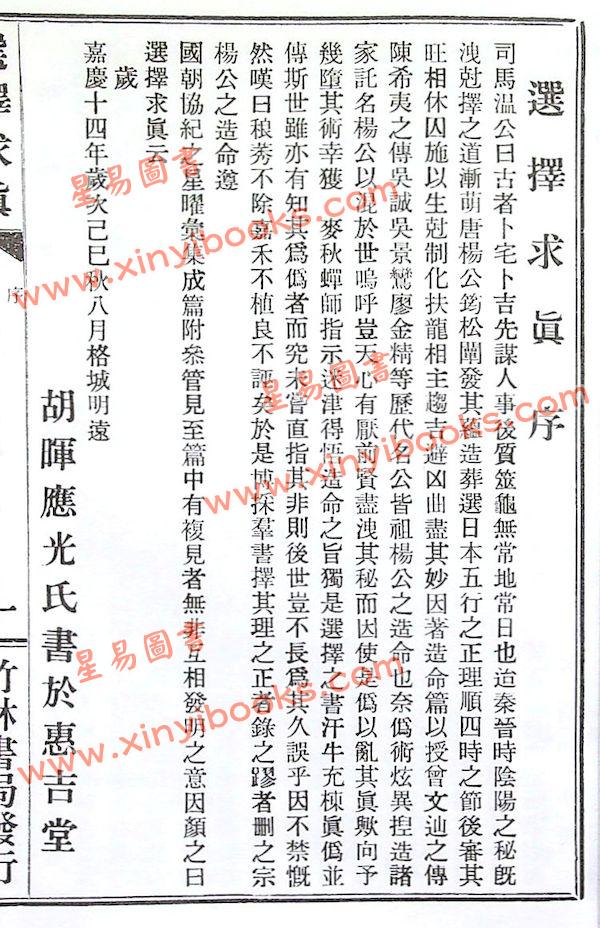 選擇求眞序
司馬溫公曰古者卜宅卜吉先謀人事後質筮龜無常地常日也迨秦晉時陰陽之秘旣
洩尅擇之道漸萌唐楊公筠松闡發其蘊造葬選日本五行之正理順四時之節後審其
旺相休囚施以生尅制化扶龍相主趨吉避凶曲盡其妙因著造命篇以授曾文辿之傳
陳希夷之傳吳誠吳景鸞廖金精等歷代名公皆祖楊公之造命也奈僞術炫異揑造諸
家託名楊公以混於世嗚呼豈天心有厭前賢盡洩其秘而因使是僞以亂其眞歟向予
幾墮其術幸獲 麥秋蟬師指示迷津得悟造命之旨獨是選擇之書汗牛充棟眞僞並
傳斯世雖亦有知其爲僞者而究未嘗直指其非則後世豈不長爲其久誤乎因不禁慨
然嘆曰稂莠不除嘉禾不植良不誣矣於是博採羣書擇其理之正者錄之謬者刪之宗
楊公之造命遵
國朝協紀之星曜彙集成篇附叅管見至篇中有複見者無非互相發明之意因顏之曰
選擇求眞云
歲
嘉慶十四年歲次己巳秋八月格城明遠
胡暉應光氏書於惠吉堂
選擇求眞
序
一
竹林書局發行
星易圖書
www.xinyibooks.com
星易圖書
www.xinyibooks.com
星易圖書
www.xinyibooks.com